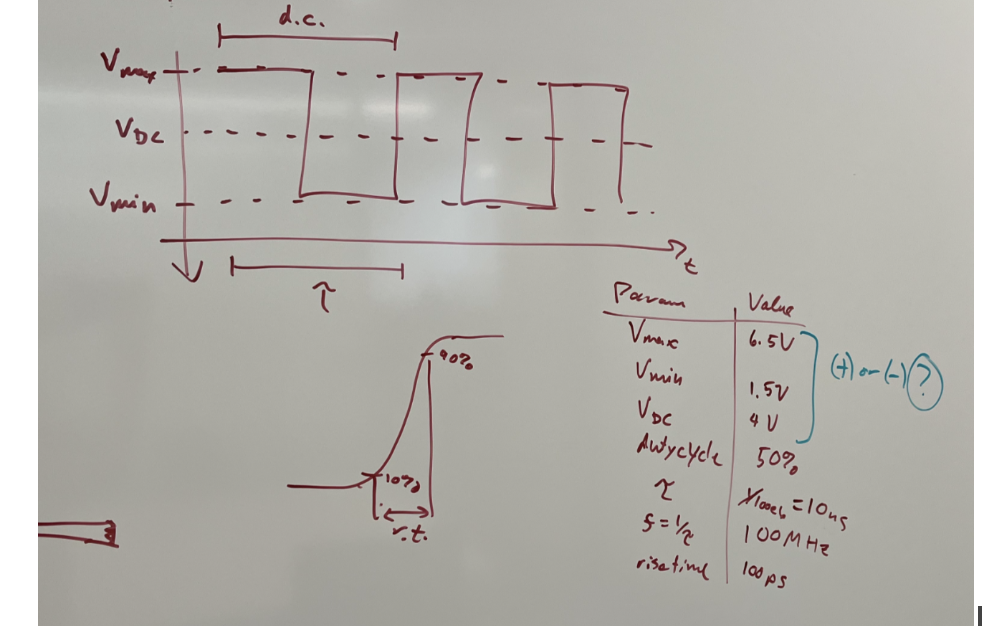 d.c.
Vmax
VDC
Vmin
t
τ
90%
10%
r.t.
Param Value
Vmax 6.5V
Vmin 1.5V
VDC 4V
(+) or (-) ?
dutycycle 50%
τ 1/100e6 = 10ns
f = 1/τ 100MHz
risetime 100ps